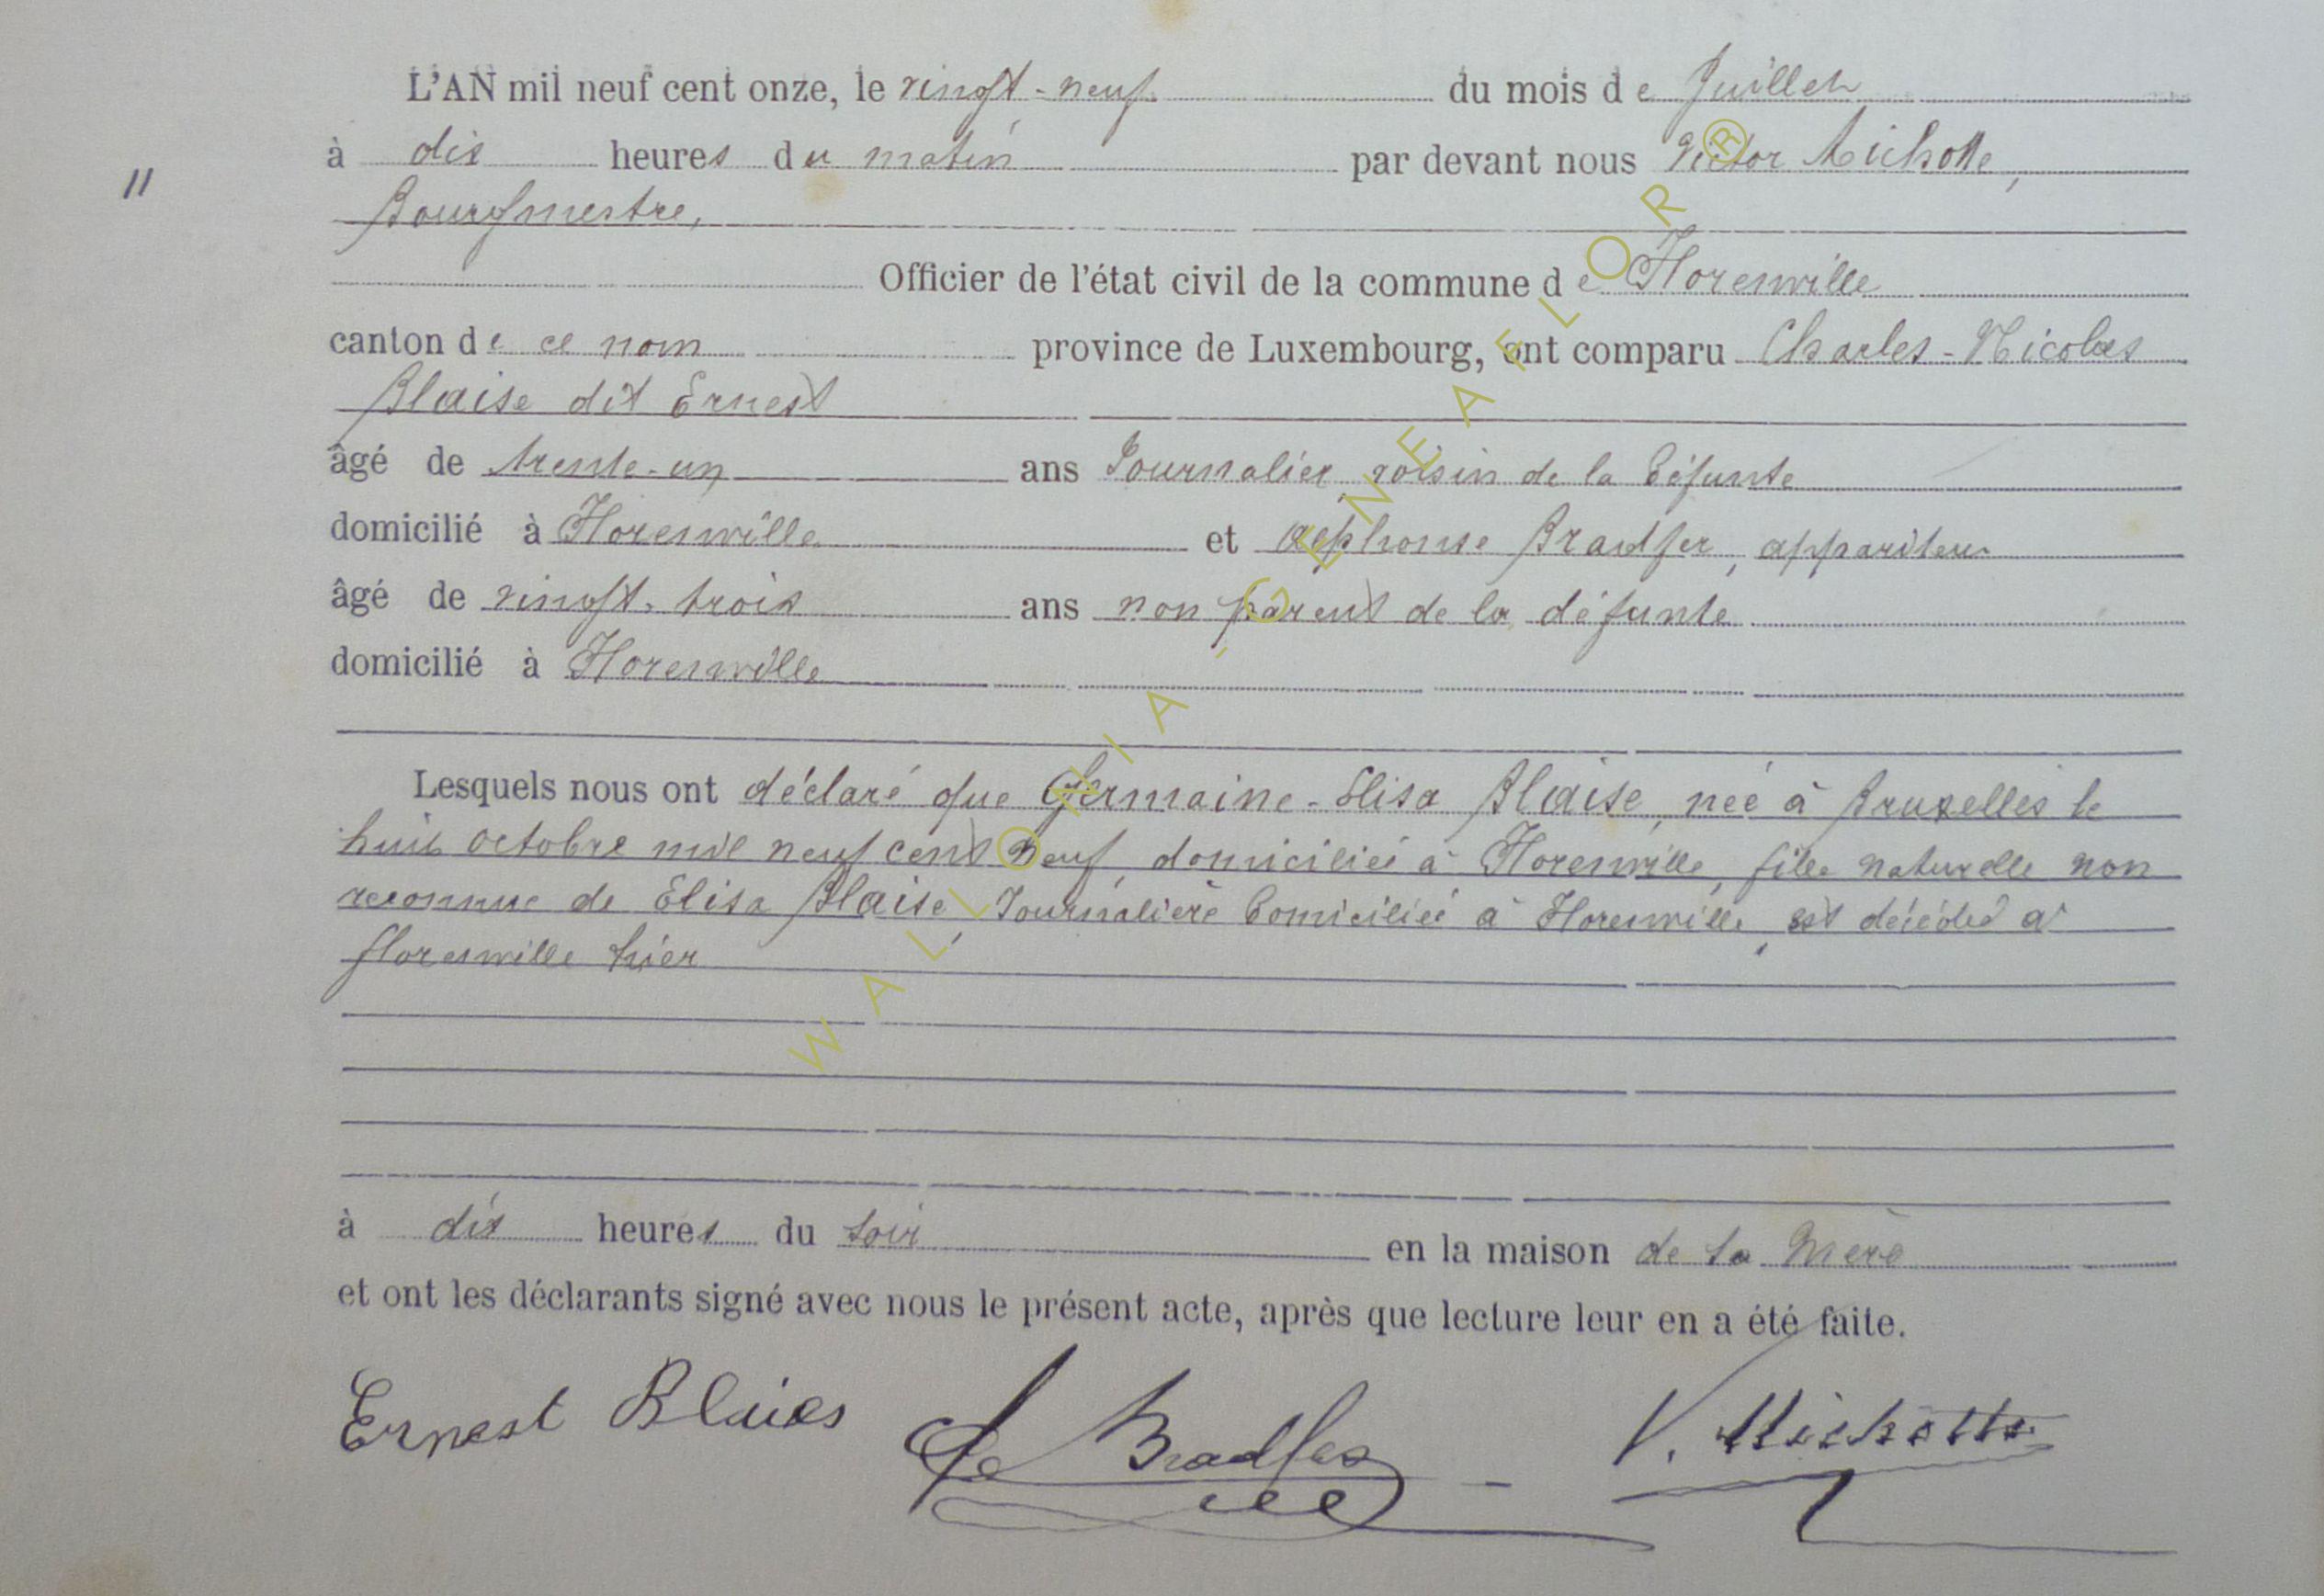 L'AN mil neuf cent onze, le vingt-neuf du mois de Juillet
à dix heures du matin par devant nous Victor Michotte,
11
Bourgmestre,
Officier de l'état civil de la commune de Florenville
canton de ce nom province de Luxembourg, ont comparu Charles-Nicolas
Blaise dit Ernest
âgé de trente-un ans Journalier, voisin de la défunte
domicilié à Florenville et Alphonse Bradfer, appariteur
âgé de vingt-trois ans non parent de la défunte
domicilié à Florenville
Lesquels nous ont déclaré que Germaine-Elisa Blaise, née à Bruxelles le
huit octobre mil neuf cent neuf, domiciliée à Florenville, fille naturelle non
reconnue de Elisa Blaise, Journalière domiciliée à Florenville, est décédée à
florenville hier
à dix heures du soir en la maison de sa mère
et ont les déclarants signé avec nous le présent acte, après que lecture leur en a été faite.
Ernest Blaies Bradfer V. Michotte
WALLONIA - GENEAFLOR ®